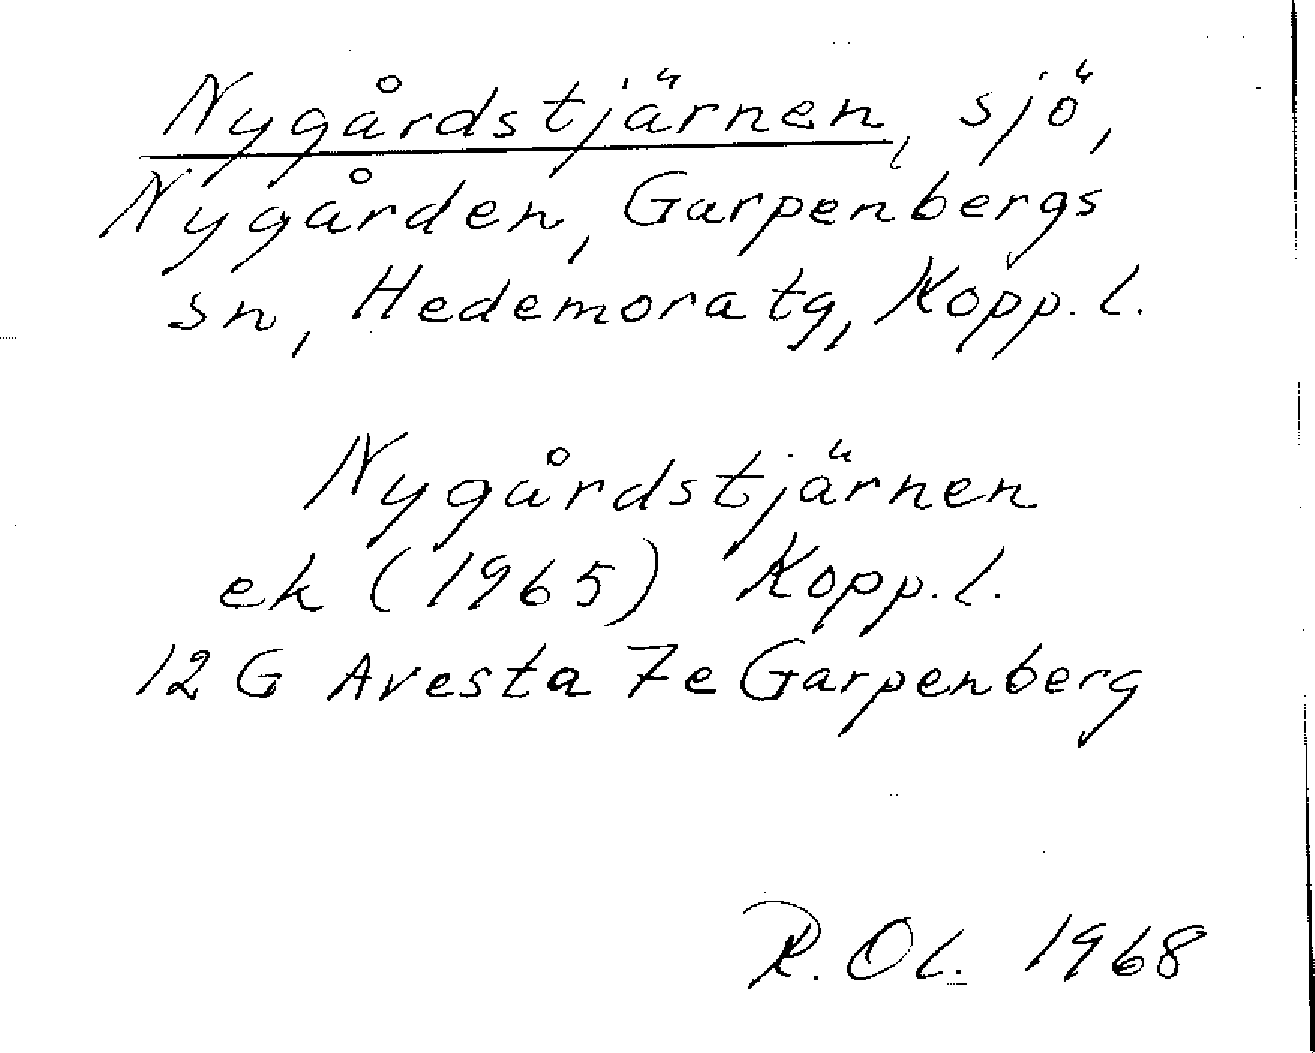 Nygårdstjärnen, sjö,
Nygården, Garpenbergs
sn, Hedemora tg, Kopp. l.
Nygårdstjärnen
ek (1965) Kopp. l.
12 G Avesta 7e Garpenberg
R. Ol. 1968